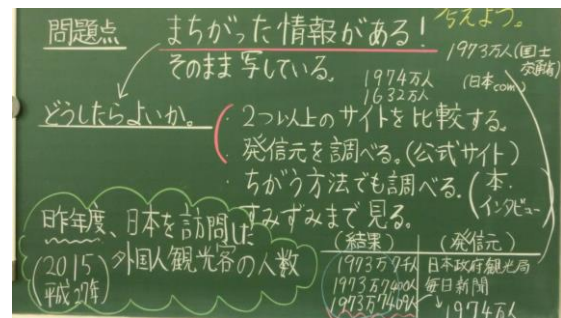 考えよう。
問題点 まちがった情報がある!
1973万人(国土交通省)
そのまま写している。
1974万人 (日本com.)
1632万人
どうしたらよいか。
・2つ以上のサイトを比較する。
・発信元を調べる。(公式サイト)
・ちがう方法でも調べる。(本・インタビュー
・すみずみまで見る。
昨年度、日本を訪問した
(2015 平成27年) 外国人観光客の人数
(結果) (発信元)
1973万7千人 日本政府観光局
1973万7400人 毎日新聞
1973万7409人 → 1974万人